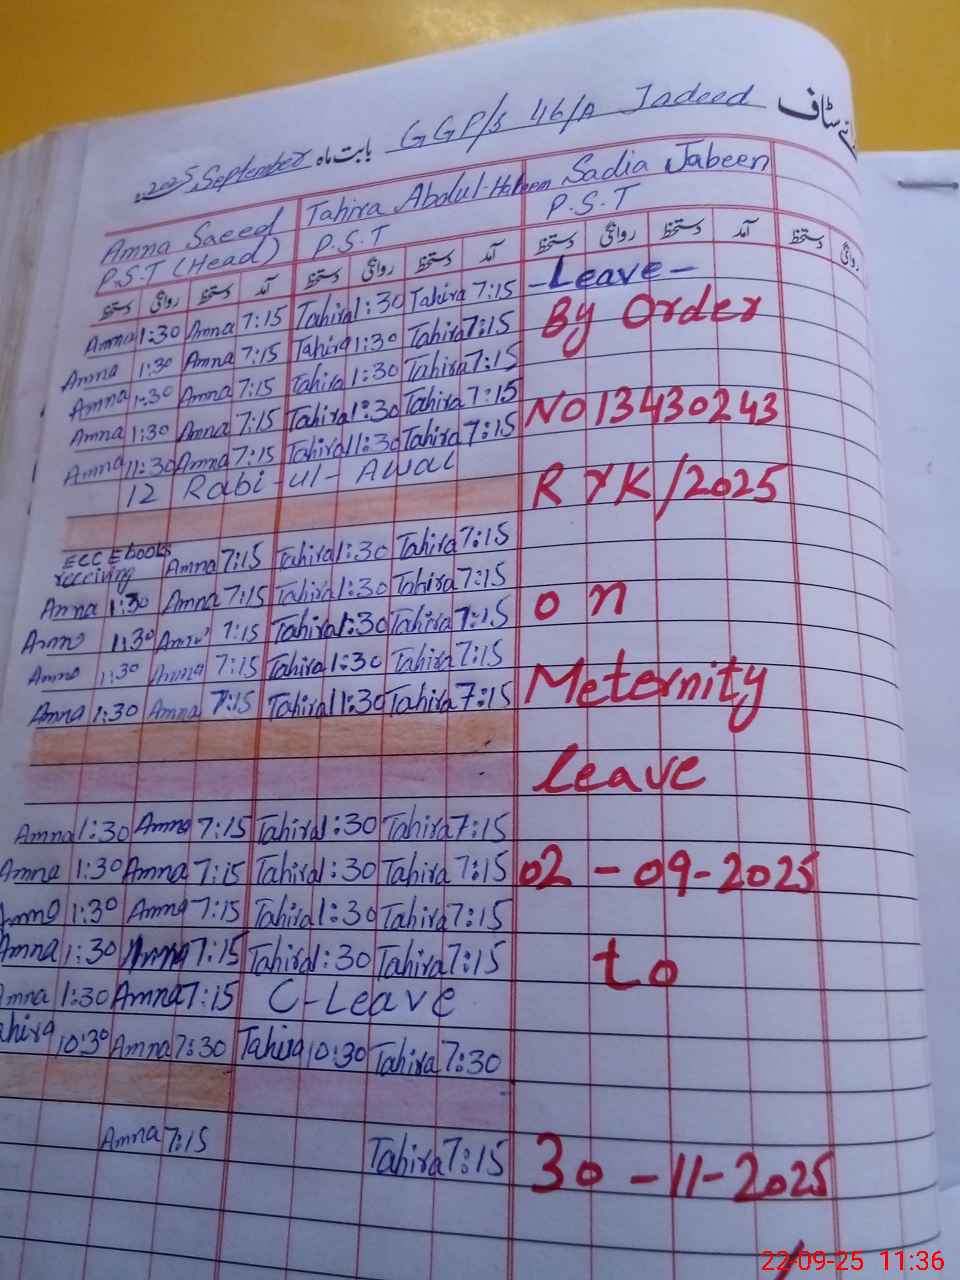 نے سٹاف
2025 September بابت ماہ GGP/S 46/A Jadeed
Amna Saeed Tahira Abdul-Haleem Sadia Jabeen
P.S.T (Head) P.S.T P.S.T
دستخط روانگی دستخط آمد دستخط روانگی دستخط آمد دستخط روانگی دستخط آمد دستخط روانگی
Amna 1:30 Amna 7:15 Tahira 1:30 Tahira 7:15 -Leave-
Amna 1:30 Amna 7:15 Tahira 1:30 Tahira 7:15 By Order
Amna 1:30 Amna 7:15 Tahira 1:30 Tahira 7:15
Amna 1:30 Amna 7:15 Tahira 1:30 Tahira 7:15 NO 13430243
Amna 11:30 Amna 7:15 Tahira 11:30 Tahira 7:15
12 Rabi-ul-Awal RYK/2025
ECCE books receiving Amna 7:15 Tahira 1:30 Tahira 7:15
Amna 1:30 Amna 7:15 Tahira 1:30 Tahira 7:15 on
Amna 1:30 Amna 7:15 Tahira 1:30 Tahira 7:15
Amna 1:30 Amna 7:15 Tahira 1:30 Tahira 7:15 Meternity
Amna 1:30 Amna 7:15 Tahira 11:30 Tahira 7:15
leave
Amna 1:30 Amna 7:15 Tahira 1:30 Tahira 7:15
Amna 1:30 Amna 7:15 Tahira 1:30 Tahira 7:15 02-09-2025
Amna 1:30 Amna 7:15 Tahira 1:30 Tahira 7:15
Amna 1:30 Amna 7:15 Tahira 1:30 Tahira 7:15 to
Amna 1:30 Amna 7:15 C-Leave
ahira 10:30 Amna 7:30 Tahira 10:30 Tahira 7:30
Amna 7:15 Tahira 7:15 30-11-2025
22-09-25 11:36